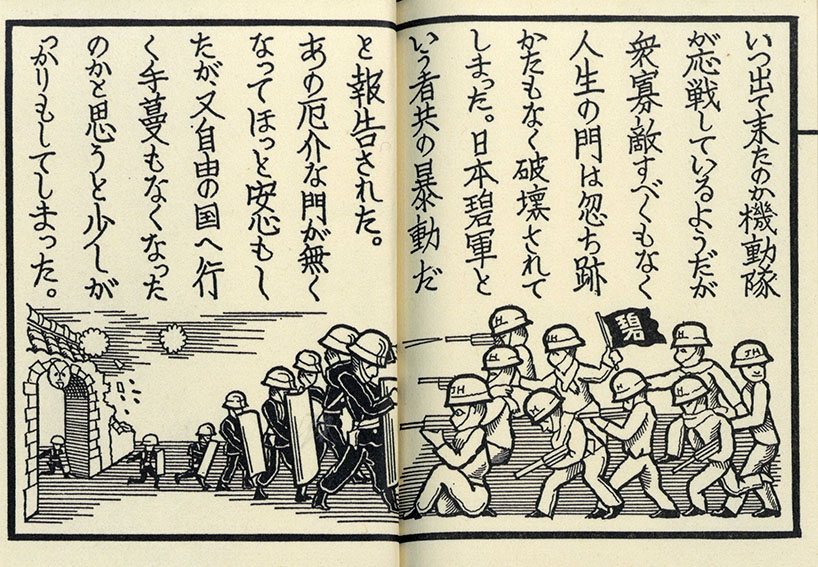 いつ出て来たのか機動隊
が応戦しているようだが
衆寡敵すべくもなく
人生の門は忽ち跡
かたもなく破壊されて
しまった。日本碧軍と
いう者共の暴動だ
と報告された。
あの厄介な門が無く
なってほっと安心もし
たが又自由の国へ行
く手蔓もなくなった
のかと思うと少しが
っかりもしてしまった。
碧
H
H
H
JH
JH
H
H
H